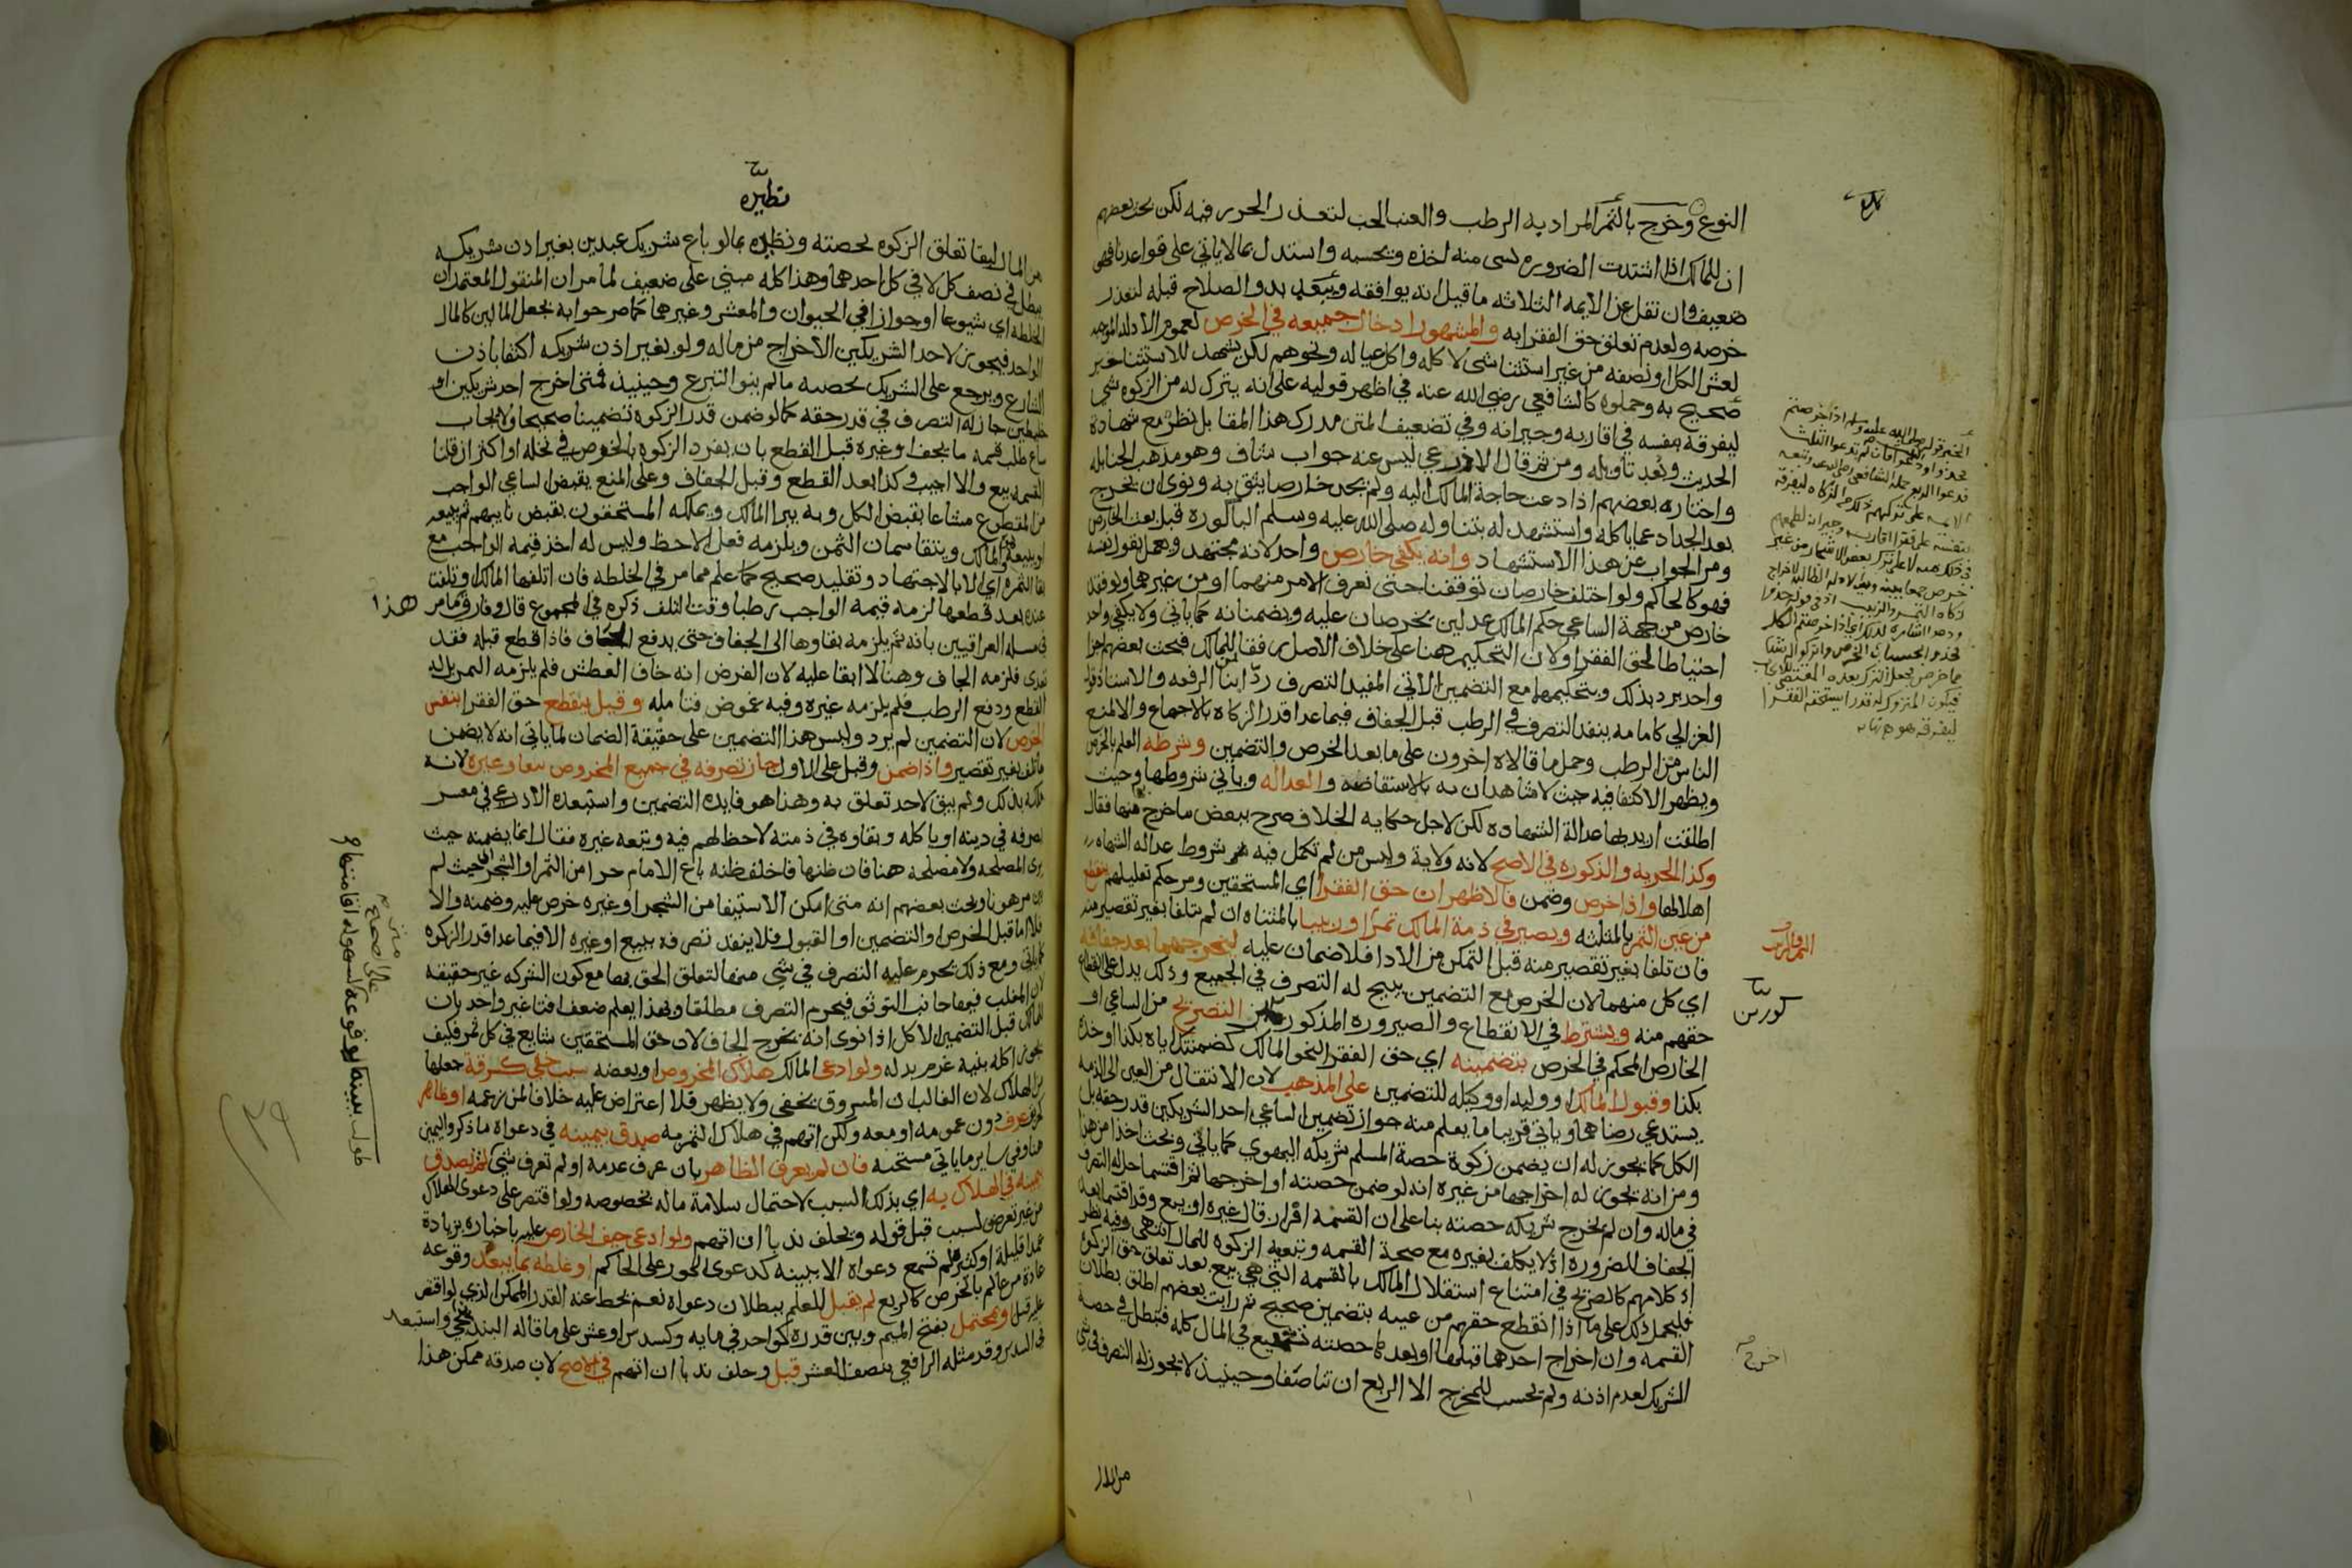 النوع وخرج بالثمر المراد به الرطب والعنب الحب لتعذر الحزر فيه لكن بحث بعضهم
ان للمالك اذا اشتدت الضرورة لشي منه اخذه ويحسبه واستدل بما لا ياتي على قواعدنا فهو
ضعيف وان نقل عن الايمة الثلاثة ما قيل انه يوافقه وببعد بدو الصلاح قبله لتعذر
خرصه ولعدم تعلق حق الفقرا به والمشهور ادخال جميعه في الخرص لعموم الادلة الموجبة
لعشر الكل او نصفه من غير استثنا شي لا كله واكل عياله ونحوهم لكن يشهد للاستثنا خبر
صحيح به وحملوه كالشافعي رضي الله عنه في اظهر قوليه على انه يترك له من الزكوة شي
ليفرقه بنفسه في اقاربه وجيرانه وفي تضعيف المتن مدرك هذا المقابل نظر مع شهادة
الحديث وبعد تاويله ومن ثم قال الاذرعي ليس عنه جواب شاف وهو مذهب الحنابلة
واختاره بعضهم اذا دعت حاجة المالك اليه ولم يجد خارصا يثق به ونوى ان يخرج
بعد الجداد عما ياكله واستشهد له بتناوله صلى الله عليه وسلم الباكورة قبل بعث الخارص
ومر الجواب عن هذا الاستشهاد وانه يكفي خارص واحد لانه مجتهد ويعمل بقول نفسه
فهو كالحاكم ولو اختلف خارصان توقفنا حتى نعرف الامر منهما او من غيرهما ولو فقد
خارص من جهة الساعي حكم المالك عدلين يخرصان عليه ويضمنانه كما ياتي ولا يكفي واحد
احتياطا لحق الفقرا ولان التحكيم هنا على خلاف الاصل رفقا بالمالك فبحث بعضهم اجزا
واحد يرد بذلك وبتحكيمهما مع التضمين الاتي المفيد للتصرف رد ابن الرفعة والاسنوي قول
الغزالي كامامه ينفذ التصرف في الرطب قبل الجفاف فيما عدا قدر الزكاة بالاجماع والا لمنع
الناس من الرطب وحمل ما قالاه اخرون على ما بعد الخرص والتضمين وشرطه العلم بالخرص
ويظهر الاكتفا فيه حيث لا شاهدان به بالاستفاضة والعدالة وياتي شروطها وحيث
اطلقت اريد بها عدالة الشهادة لكن لاجل حكاية الخلاف صرح ببعض ما خرج منها فقال
وكذا الحرية والذكورة في الاصح لانه ولاية وليس من لم تكمل فيه شروط عدالة الشهادة
اهلا لها واذا خرص وضمن فالاظهر ان حق الفقرا اي المستحقين ومر حكم تغليبهم ينقطع
من عين الثمر بالمثلثة ويصير في ذمة المالك تمرا وزبيبا بالمثناه ان لم يتلفا بغير تقصير منه
فان تلفا بغير تقصير منه قبل التمكن من الادا فلا ضمان عليه ليخرجهما بعد جفافه
اي كل منهما لان الخرص مع التضمين يبيح له التصرف في الجميع وذلك يدل على انقطاع
حقهم منه ويشترط في الانقطاع والصيرورة المذكورين التصريح من الساعي او
الخارص المحكم في الخرص بتضمينه اي حق الفقرا لنحو المالك كضمنتك اياه بكذا او خذه
بكذا وقبول المالك او وليه او وكيله للتضمين على المذهب لان الانتقال من العين الى الذمة
يستدعي رضاهما وياتي قريبا ما يعلم منه جواز تضمين الساعي احد الشريكين قدر حقه بل
الكل كما يجوز له ان يضمن زكوة حصة المسلم شريكه اليهودي كما ياتي وبحث اخذا من هنا
ومن انه يجوز له اخراجها من غيره انه لو ضمن حصته او اخرجها ثم اقتسما حل له التصرف
في ماله وان لم يخرج شريكه حصته بنا على ان القسمة افراز قال غيره او بيع وقد اقتسما بعد
الجفاف للضرورة اذ لا يكلف بغيره مع صحة القسمة وتبعية الزكوة للمال انتهى وفيه نظر
اذ كلامهم كالصريح في امتناع استقلال المالك بالقسمة التي هي بيع بعد تعلق حق الزكوة
فليحمل ذلك على ما اذا انقطع حقهم من عينه بتضمين صحيح ثم رايت بعضهم اطلق بطلان
القسمة وان اخراج احدهما قبلها او بعدها حصته شيع في المال كله فتبطل في حصة
الشريك لعدم اذنه ولم يحسب للمخرج الا الربع ان تناصفا وحينيذ لا يجوز له التصرف في شي
من المال
الخبر قوله صلى الله عليه وسلم اذا خرصتم
فخذوا ودعوا الثلث فان لم تدعوا الثلث
فدعوا الربع حمله الشافعي رضي الله عنه وتبعه
الايمة على تركهم ذلك من الزكاة ليفرقه
بنفسه على فقرا اقاربه وجيرانه لطمعهم
في ذلك منه لا على ترك بعض الاشجار من غير
خرص جمعا بينه وبين الادلة الطالبة لاخراج
زكاة التمر والزبيب
التمر والزبيب
كورين
اخرج
نظيره
من المال لبقا تعلق الزكوة بحصته ونظيره بما لو باع شريك عبدين بغير اذن شريكه
يبطل في نصف كل لا في كل احدهما وهذا كله مبني على ضعيف لما مر ان المنقول المعتمد ان
الخلطة اي شيوعا او جوازا في الحيوان والمعشر وغيرهما كما صرحوا به يجعل المالين كالمال
الواحد فيجوز لاحد الشريكين الاخراج من ماله ولو بغير اذن شريكه اكتفا باذن
الشارع ويرجع على الشريك بحصته ما لم ينو التبرع وحينيذ فمتى اخرج احد شريكين او
خليطين جاز له التصرف في قدر حقه كما لو ضمن قدر الزكوة تضمينا صحيحا ولا يجاب
ساع طلب قسمة ما يجف او غيره قبل القطع بان يفرد الزكوة بالخرص في نخلة او اكثر ان قلنا
القسمة بيع والا اجيب وكذا بعد القطع وقبل الجفاف وعلى المنع يقبض الساعي الواجب
من المقطوع مشاعا بقبض الكل وبه يبرا المالك ويملكه المستحقون بقبض نايبهم ثم يبيعه
او يبيعه والمالك ويتقاسمان الثمن ويلزمه فعل الاحظ وليس له اخذ قيمة الواجب مع
بقا الثمرة اي الا بالاجتهاد وتقليد صحيح كما علم مما مر في الخلطة فان اتلفها المالك او تلفت
عنده بعد قطعها لزمه قيمة الواجب رطبا وقت التلف ذكره في المجموع قال وفارق ما مر هذا
في مسيلة العراقيين بانه ثم يلزمه بقاوها الى الجفاف حتى يدفع الجاف فاذا قطع قبله فقد
تعدى فلزمه الجاف وهنا لا ابقا عليه لان الفرض انه خاف العطش فلم يلزمه التمر بل له
القطع ودفع الرطب فلم يلزمه غيره وفيه غموض فتامله وقيل ينقطع حق الفقرا بنفس
الخرص لان التضمين لم يرد وليس هذا التضمين على حقيقة الضمان لما ياتي انه لا يضمن
ما تلف بغير تقصير واذا ضمن وقبل على الاول جاز تصرفه في جميع المخروص بيعا وغيره لانه
ملكه بذلك ولم يبق لاحد تعلق به وهذا هو فايدة التضمين واستبعده الاذرعي في معسر
يصرفه في دينه او ياكله وبقاوه في ذمته لا حظ لهم فيه وتبعه غيره فقال انما يضمنه حيث
يرى المصلحة ولا مصلحة هنا فان ظنها فاخلف ظنه باع الامام جزا من الثمر او الشجر حيث لم
يكن مرهونا وبحث بعضهم انه متى امكن الاستيفا من الشجر او غيره خرص عليه وضمنه والا
فلا اما قبل الخرص او التضمين او القبول فلا ينفذ تصرفه ببيع او غيره الا فيما عدا قدر الزكوة
كما ياتي ومع ذلك يحرم عليه التصرف في شي منها لتعلق الحق بها مع كون الشركة غير حقيقية
لان المغلب فيها جانب التوثق فيحرم التصرف مطلقا وبهذا يعلم ضعف افتا غير واحد بان
للمالك قبل التضمين الاكل اذا نوى انه يخرج الجاف لان حق المستحقين شايع في كل ثمرة فكيف
يجوز اكله بنية غرم بدله ولو ادعى المالك هلاك المخروص او بعضه بسبب خفي كسرقة جعلها
من الهلاك لان الغالب ان المسروق يخفى ولا يظهر فلا اعتراض عليه خلافا لمن زعمه او ظاهر
كحريق عرف دون عمومه او معه ولكن اتهم في هلاك الثمر به صدق بيمينه في دعواه ما ذكر واليمين
هنا وفي ساير ما ياتي مستحبة فان لم يعرف الظاهر بان عرف عدمه او لم تعرف شي ثم يصدق
بيمينه في الهلاك به اي بذلك السبب لاحتمال سلامة ماله بخصوصه ولو اقتصر على دعوى الهلاك
من غير تعرض لسبب قبل قوله ويحلف ندبا ان اتهم ولو ادعى حيف الخارص عليه باخباره بزيادة
عمدا قليلة او كثيرة لم تسمع دعواه الا ببينة كدعوى الجور على الحاكم او غلطه بما يبعد وقوعه
عادة من عالم بالخرص كالربع لم يقبل للعلم ببطلان دعواه نعم يحط عنه القدر الممكن الذي لو اقتصر
عليه قبل او بمحتمل بفتح الميم وبين قدره كواحد في مايه وكسدس او عشر على ما قاله البندنيجي واستبعد
في السدس وقد مثله الرافعي بنصف العشر قبل وحلف ندبا ان اتهم في الاصح لان صدقه ممكن هذا
طولب ببينة لوقوعه لسهولة اقامتها
على الصحيح
متن